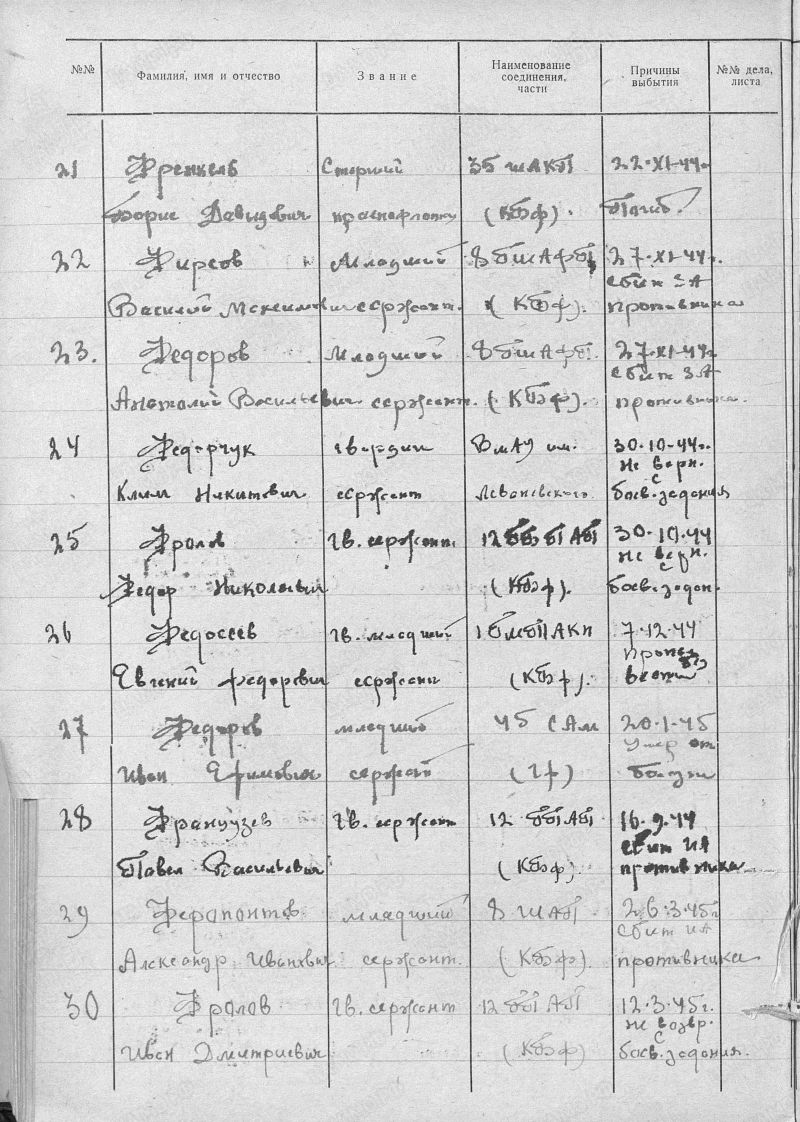 №№ Фамилия, имя и отчество Звание Наименование соединения, части Причины выбытия №№ дела, листа
21 Френкель Старший 35 шАКП 22.XI-44г.
Борис Давыдович краснофлотец (КБФ). Погиб.
22 Фирсов Младший 8 ГШАФП 27.XI-44г.
сбит ЗА
Василий сержант. (КБФ). противника
23. Федоров Младший 27.XI-44г.
сбит ЗА
Анатолий Васильевич сержант. (КБФ). противника.
24 Федорчук гвардии ВМАУ им. 30.10-44г.
не верн.
с
Клим Никитович сержант Леваневского. боев. задания
25 Фролов Гв. сержант. 30.10.44
не верн.
с
Федор Николаевич (КБФ). боев. задан.
26 Федосеев Гв. младший 7.12.44
Пропал
без
Евгений Федорович сержант (КБФ). вести
27 Федоров младший 45 САМ 20.1.45
Умер от
Иван Ефимович сержант (ТФ)
28 Французев Гв. сержант 16.9.44
сбит ИА
Павел Васильевич (КБФ). противника
29 Ферапонтов младший 8 ШАП 26.3.45г
Сбит ИА
Александр Иванович сержант. (КБФ). противника
30 Фролов Гв. сержант 12.3.45г.
не возвр.
с
Иван Дмитриевич (КБФ) боев. задания.